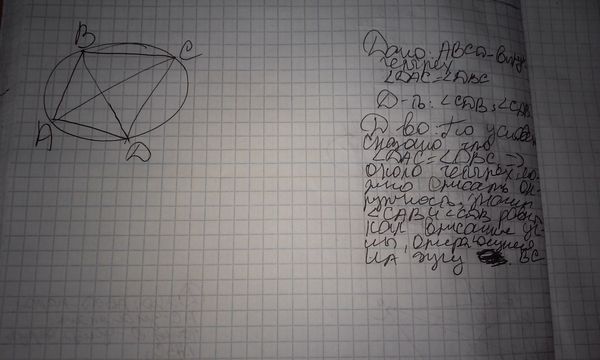 B
C
A
D
Дано: ABCD - выпу
четырех
∠DAC=∠DBC
Д-ть: ∠CDB=∠CAB
Д-во: По услови
сказано что
∠DAC=∠DBC =>
около четырех. мо
жно описать ок-
ружность, значит
∠CAB и ∠CDB равны
как описание уг-
лы, опирающиеся
на дугу BC